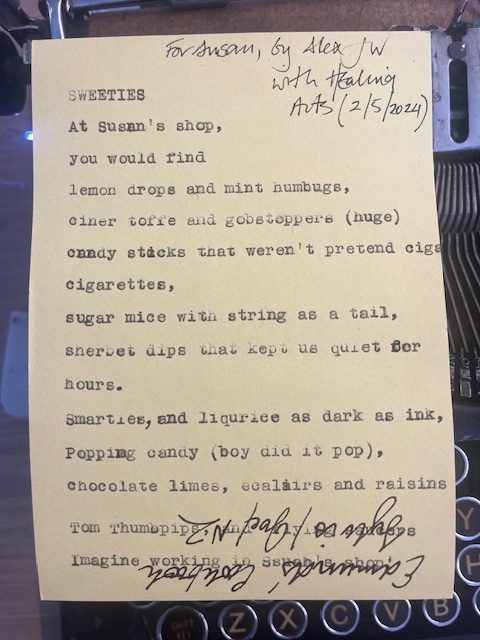 For Susan, by Alex JW
with Healing
Arts (2/5/2024)
SWEETIES
At Susan's shop,
you would find
lemon drops and mint humbugs,
ciner toffe and gobstoppers (huge)
candy sticks that weren't pretend ciga
cigarettes,
sugar mice with string as a tail,
sherbet dips that kept us quiet for
hours.
Smarties, and liqurice as dark as ink,
Popping candy (boy did it pop),
chocolate limes, ecalairs and raisins
Tom Thumbpips and flying saucers
Imagine working in Ssusan's shop!
Edmunds
SHIFT
KEY
Z
X
C
V
B
Y
H